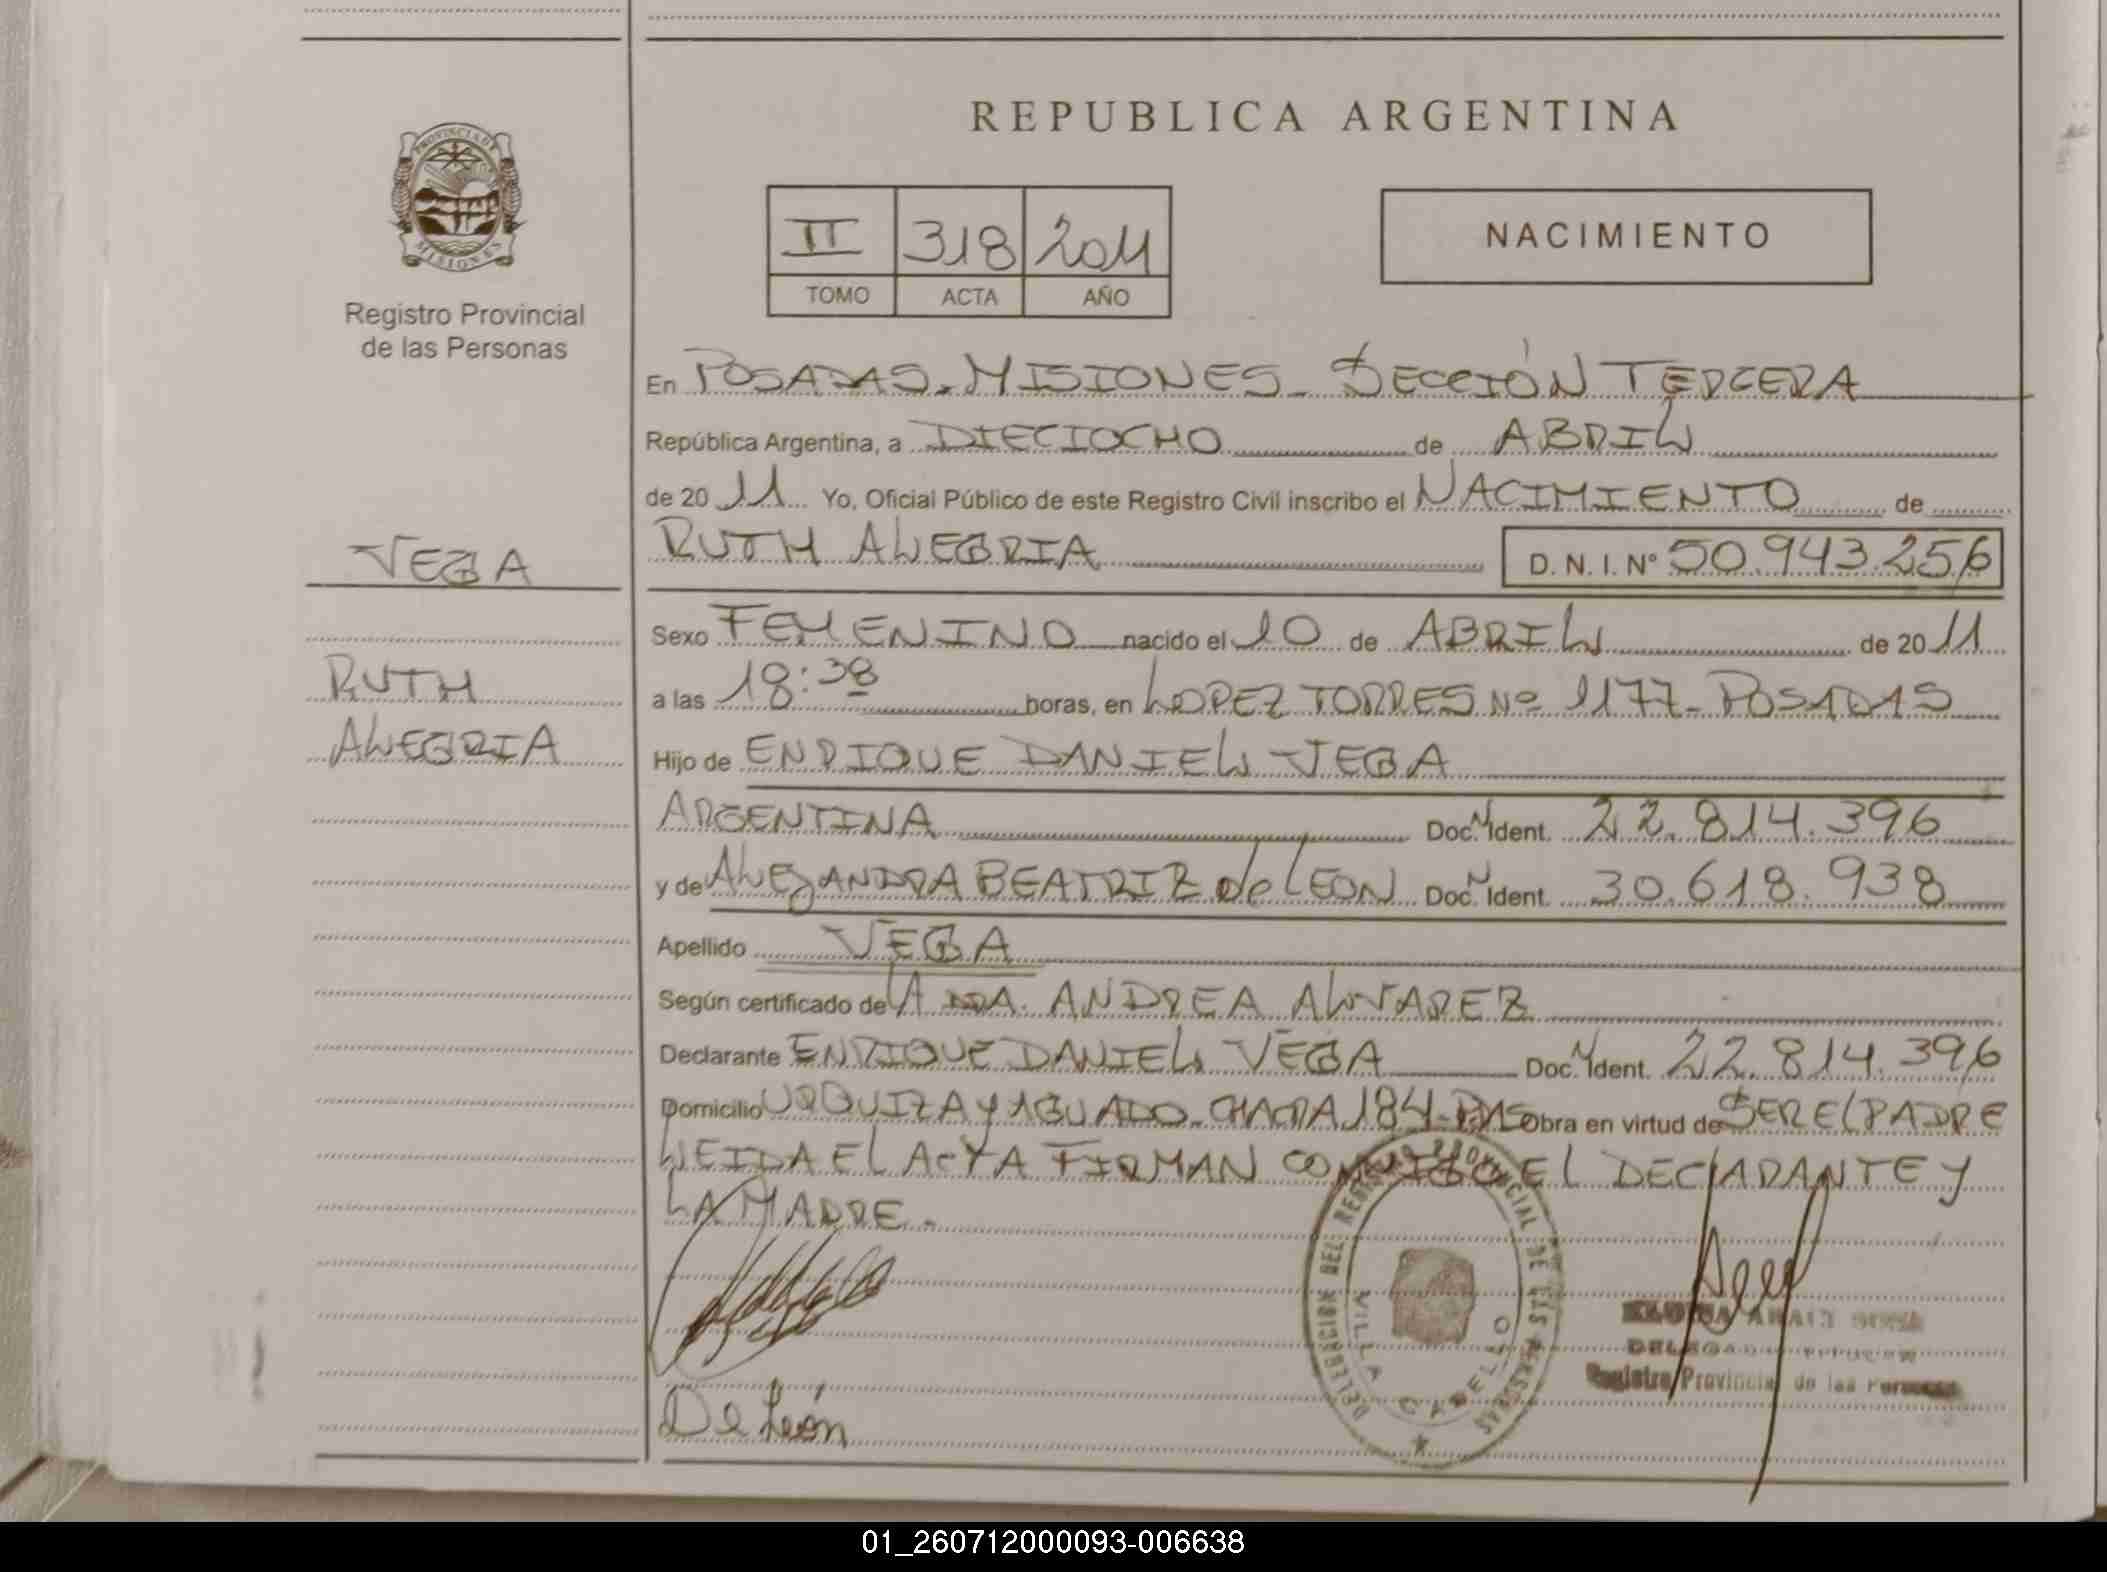 REPUBLICA ARGENTINA
PROVINCIA DE
MISIONES
Registro Provincial
de las Personas
II 318 2011
TOMO ACTA AÑO
NACIMIENTO
En POSADAS-MISIONES-SECCIÓN TERCERA
República Argentina, a DIECIOCHO de ABRIL
de 20 11 Yo, Oficial Público de este Registro Civil inscribo el NACIMIENTO de
RUTH ALEGRIA D. N. I. Nº 50.943.256
VEGA
RUTH
ALEGRIA
Sexo FEMENINO nacido el 10 de ABRIL de 20 11
a las 18:38 horas, en LOPEZ TORRES Nº 1177-POSADAS
Hijo de ENRIQUE DANIEL VEGA
ARGENTINA Doc. N Ident. 22.814.396
y de ALEJANDRA BEATRIZ de LEON Doc. N Ident. 30.618.938
Apellido VEGA
Según certificado de LA DRA. ANDREA ALVAREZ
Declarante ENRIQUE DANIEL VEGA Doc. N Ident. 22.814.396
Domicilio URQUIZA Y AGUADO-CHACRA 184-PDAS Obra en virtud de SER EL PADRE
LEIDA EL ACTA FIRMAN CONMIGO EL DECLARANTE Y
LA MADRE.
DELEGACION DEL REGISTRO PROVINCIAL DE LAS PERSONAS
VILLA CABELLO
Registro Provincial de las Personas
De León
01_260712000093-006638